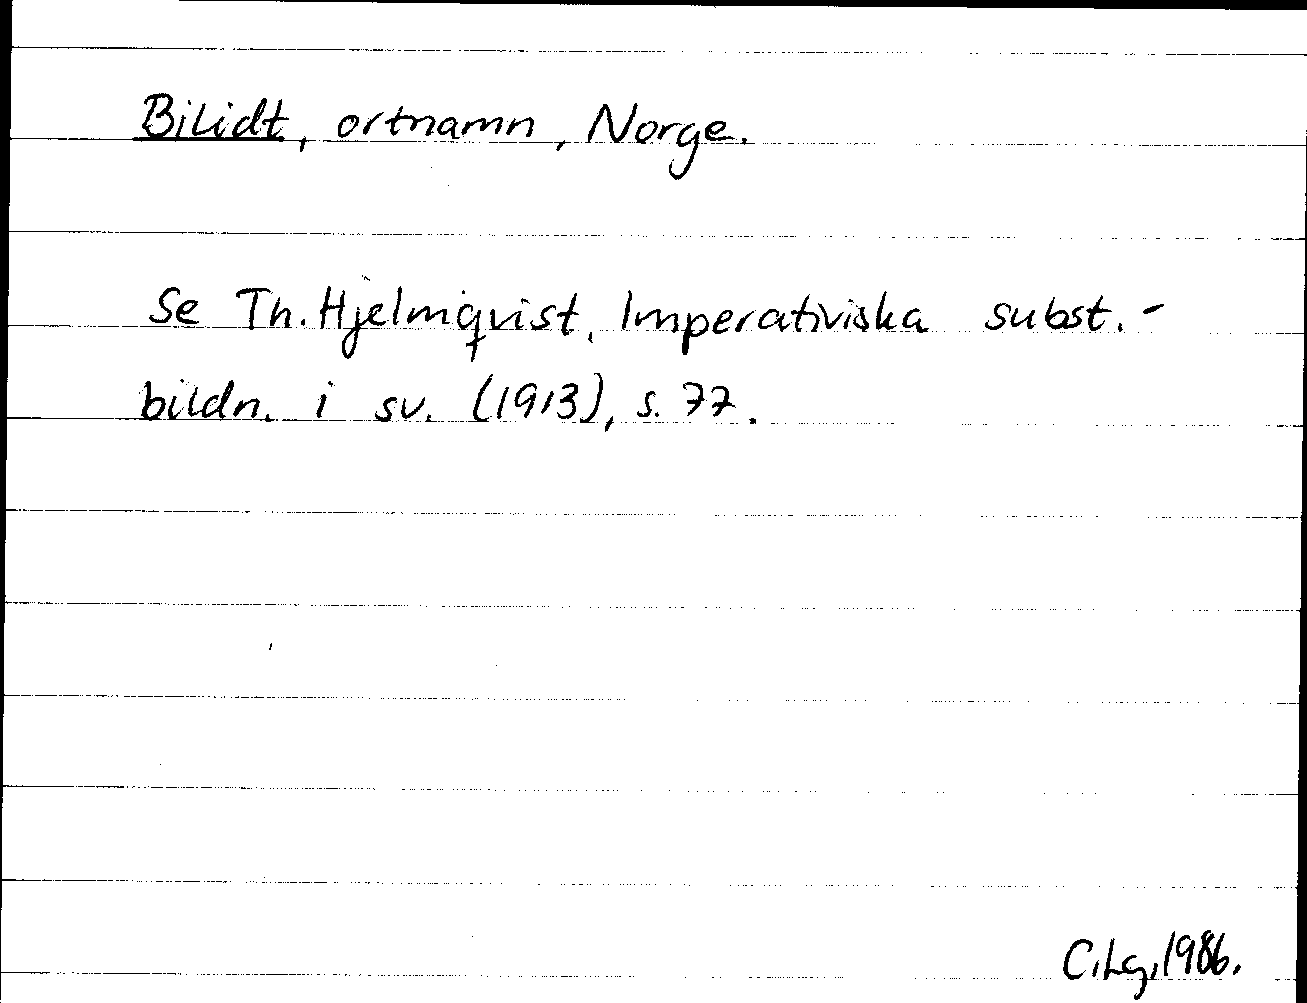 Bilidt, ortnamn, Norge.
Se Th. Hjelmqvist, Imperativiska subst.-
bildn. i sv. (1913), s. 77.
C.Lg, 1986.